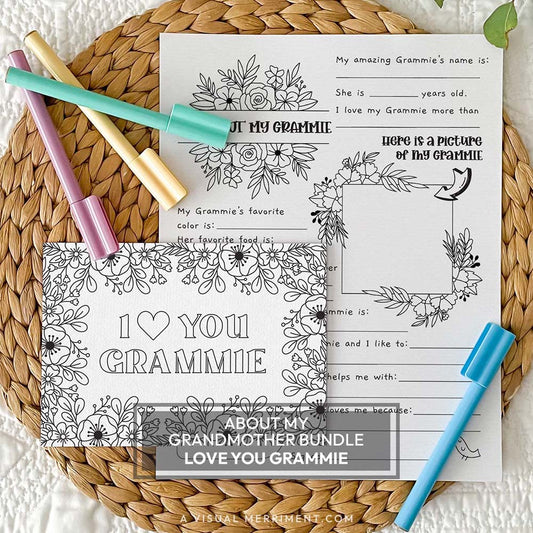 My amazing Grammie's name is:
She is years old.
I love my Grammie more than
MY GRAMMIE
HERE IS A PICTURE
OF MY GRAMMIE
My Grammie's favorite
color is:
Her favorite food is:
I ♡ YOU
GRAMMIE
is:
and I like to:
helps me with:
loves me because:
ABOUT MY
GRANDMOTHER BUNDLE
LOVE YOU GRAMMIE
A VISUAL MERRIMENT.COM